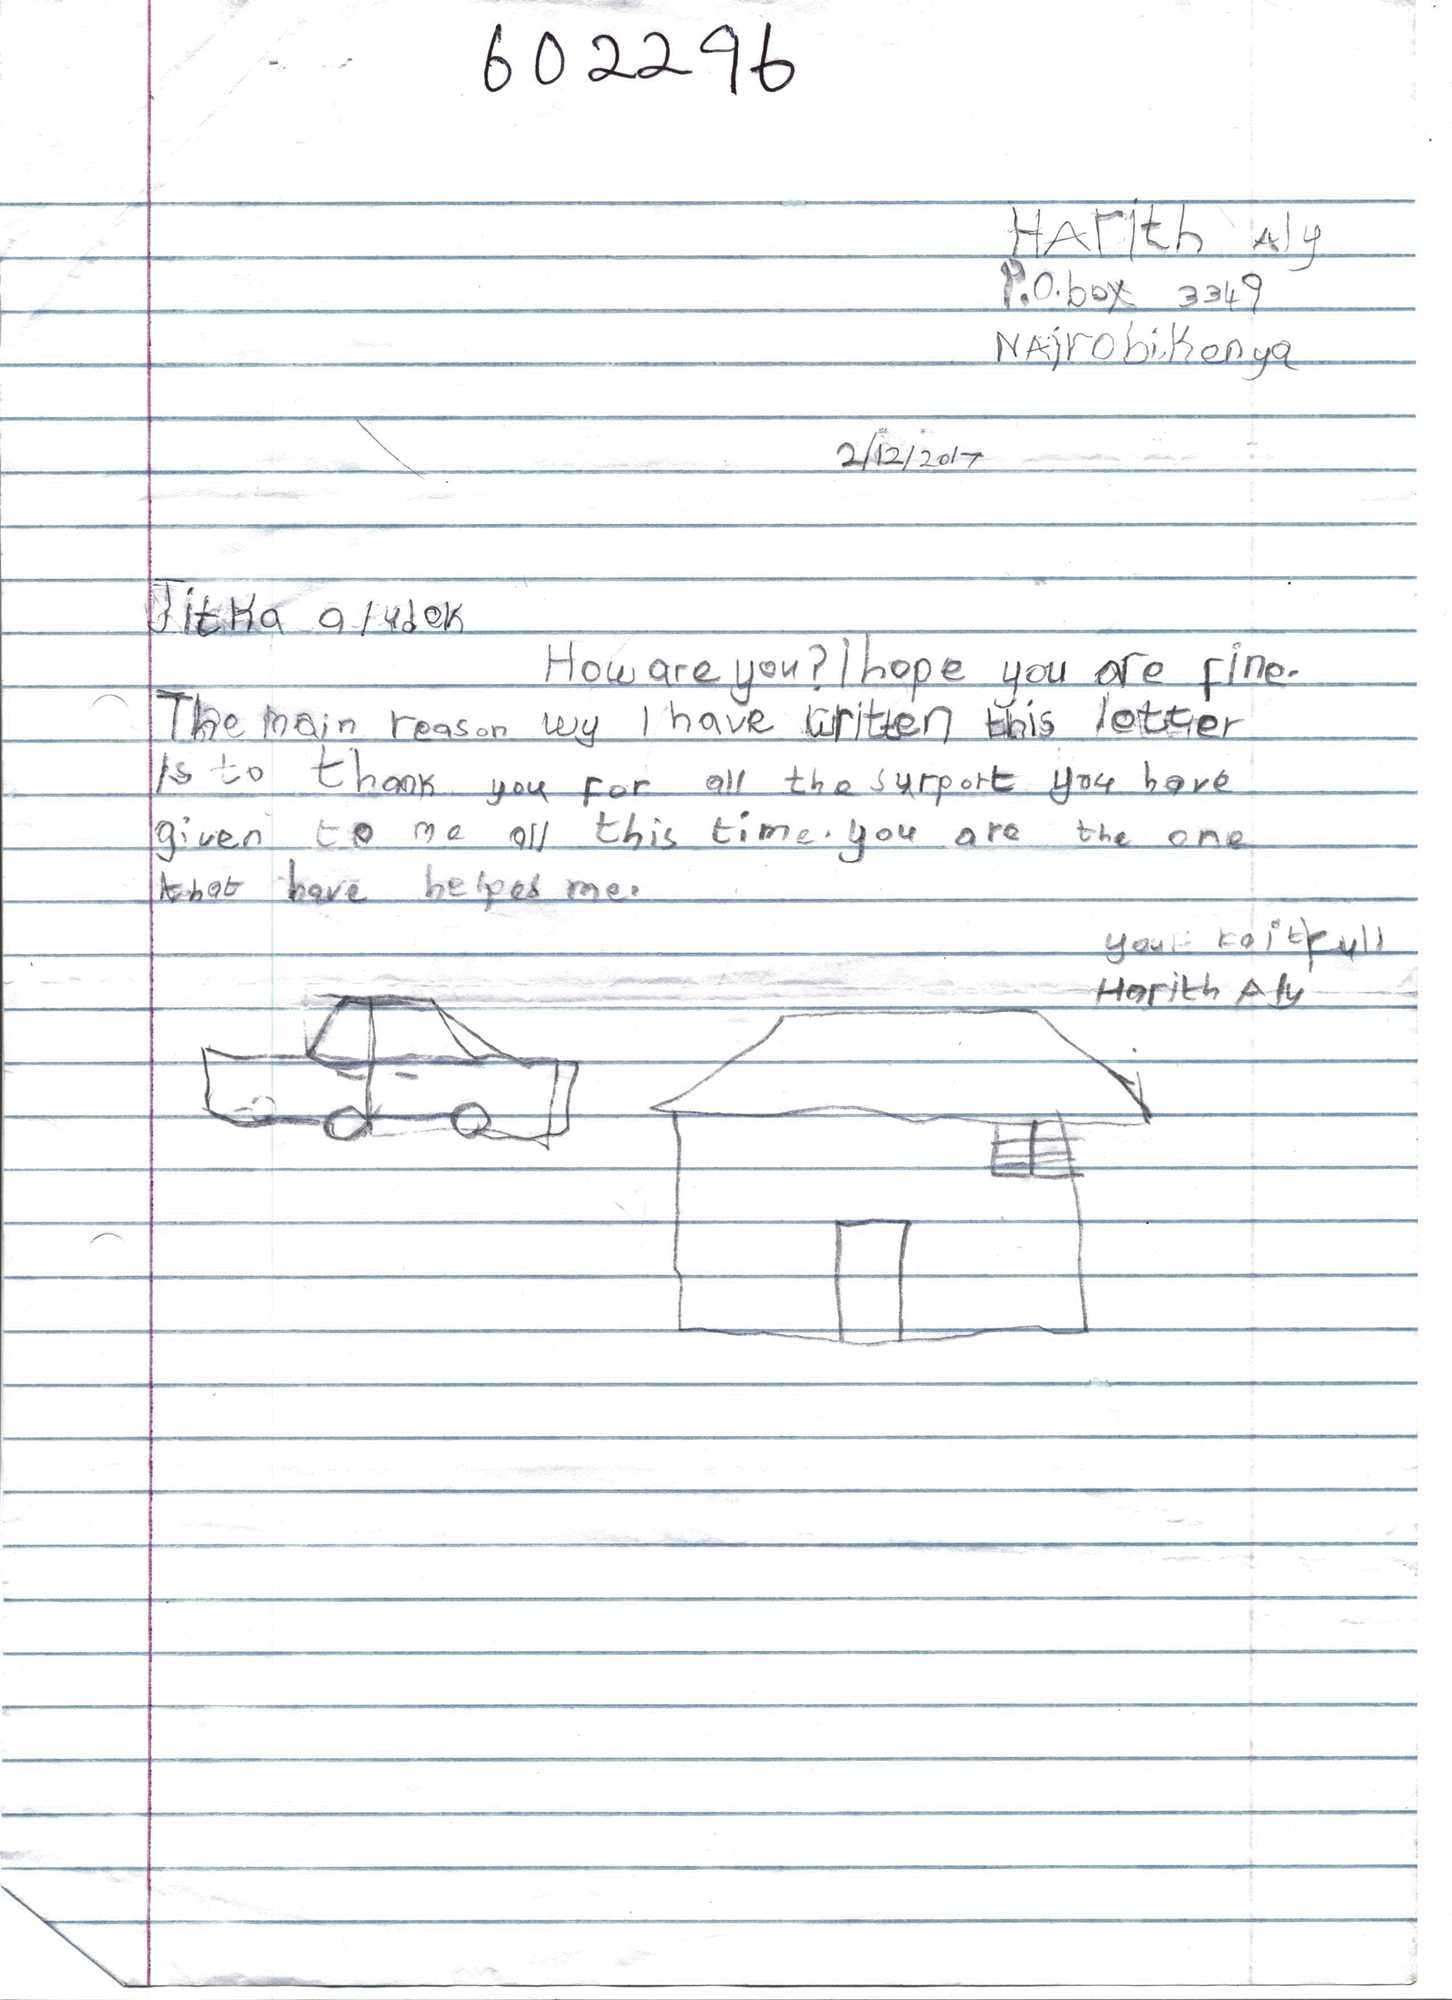 602296
HArith Aly
P.O.box 3349
NAirobi.Kenya
2/12/2017
Jitka a ludek
How are you? I hope you are fine.
The main reason wy I have written this letter
Is to thank you for all the surport you have
given to me all this time. you are the one
that have helped me.
your faitfull
Harith Aly